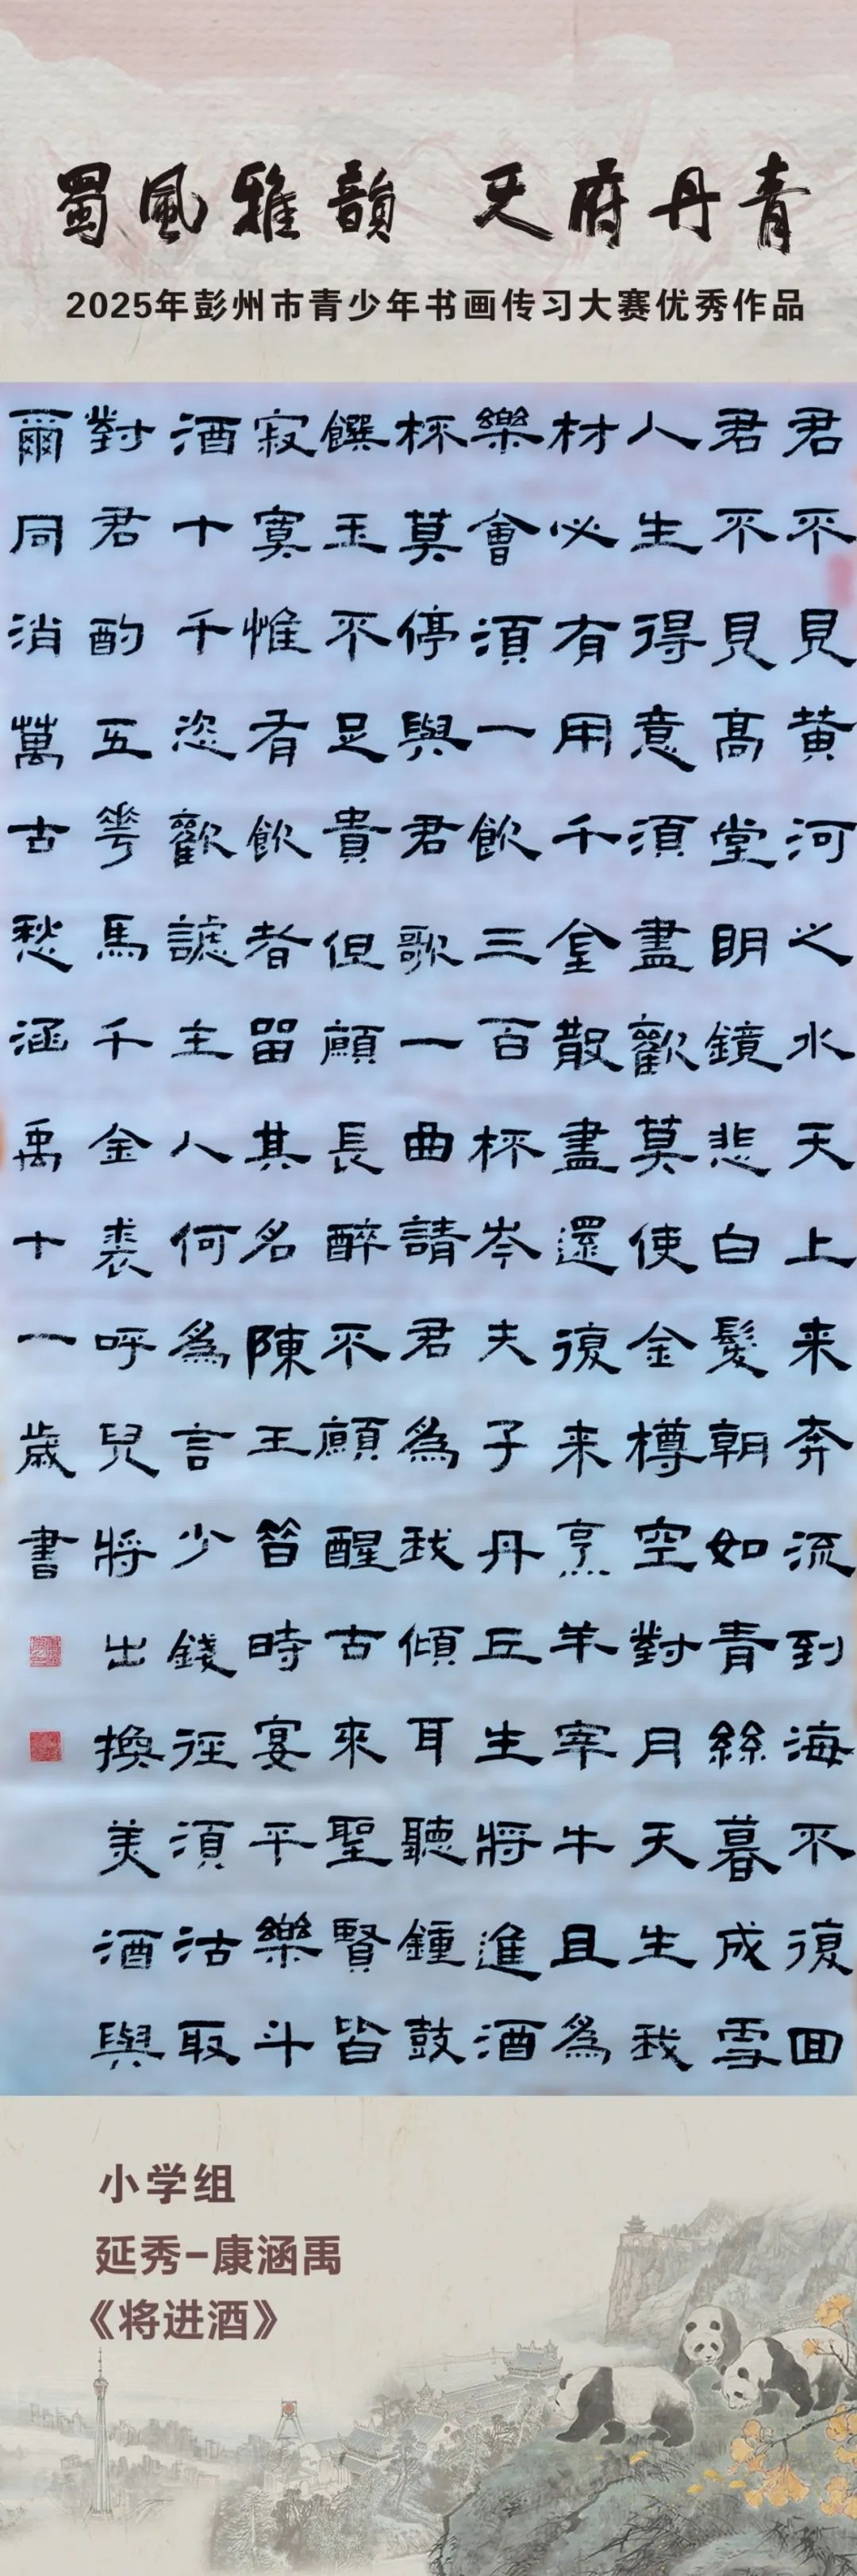 蜀風雅韻 天府丹青
2025年彭州市青少年书画传习大赛优秀作品
君不見黄河之水天上来奔流到海不復回
君不見高堂明鏡悲白髮朝如青絲暮成雪
人生得意須盡歡莫使金樽空對月天生我
材必有用千金散盡還復来烹羊宰牛且為
樂會須一飲三百杯岑夫子丹丘生將進酒
杯莫停與君歌一曲請君為我傾耳聽鍾鼓
饌玉不足貴但願長醉不願醒古來聖賢皆
寂寞惟有飲者留其名陳王昔時宴平樂斗
酒十千恣歡謔主人何為言少錢徑須沽取
對君酌五花馬千金裘呼兒將出換美酒與
爾同消萬古愁涵禹十一歲書
小学组
延秀-康涵禹
《将进酒》